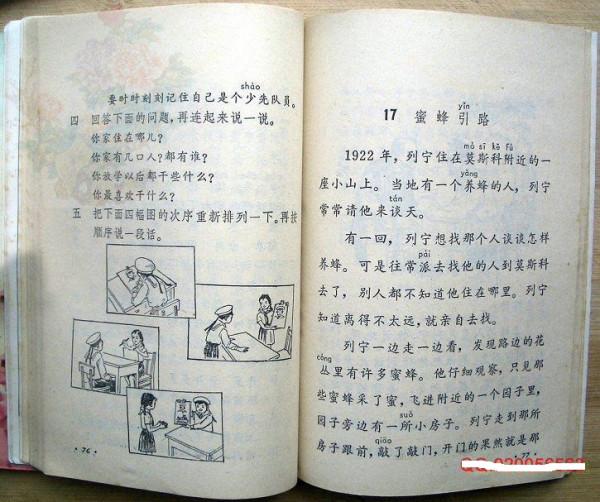 shào
要时时刻刻记住自己是个少先队员。
四 回答下面的问题,再连起来说一说。
你家住在哪儿?
你家有几口人?都有谁?
你放学以后都干些什么?
你最喜欢干什么?
五 把下面四幅图的次序重新排列一下。再按
顺序说一段话。
·76·
yǐn
17 蜜蜂引路
mò sī kē fù
1922年,列宁住在莫斯科附近的一
yǎng
座小山上。当地有一个养蜂的人,列宁
tán
常常请他来谈天。
有一回,列宁想找那个人谈谈怎样
pài
养蜂。可是往常派去找他的人到莫斯科
去了,别人都不知道他住在哪里。列宁
知道离得不太远,就亲自去找。
列宁一边走一边看,发现路边的花
cóng
丛里有许多蜜蜂。他仔细观察,只见那
些蜜蜂采了蜜,飞进附近的一个园子里,
suǒ
园子旁边有一所小房子。列宁走到那所
qiāo
房子跟前,敲了敲门,开门的果然就是那
·77·